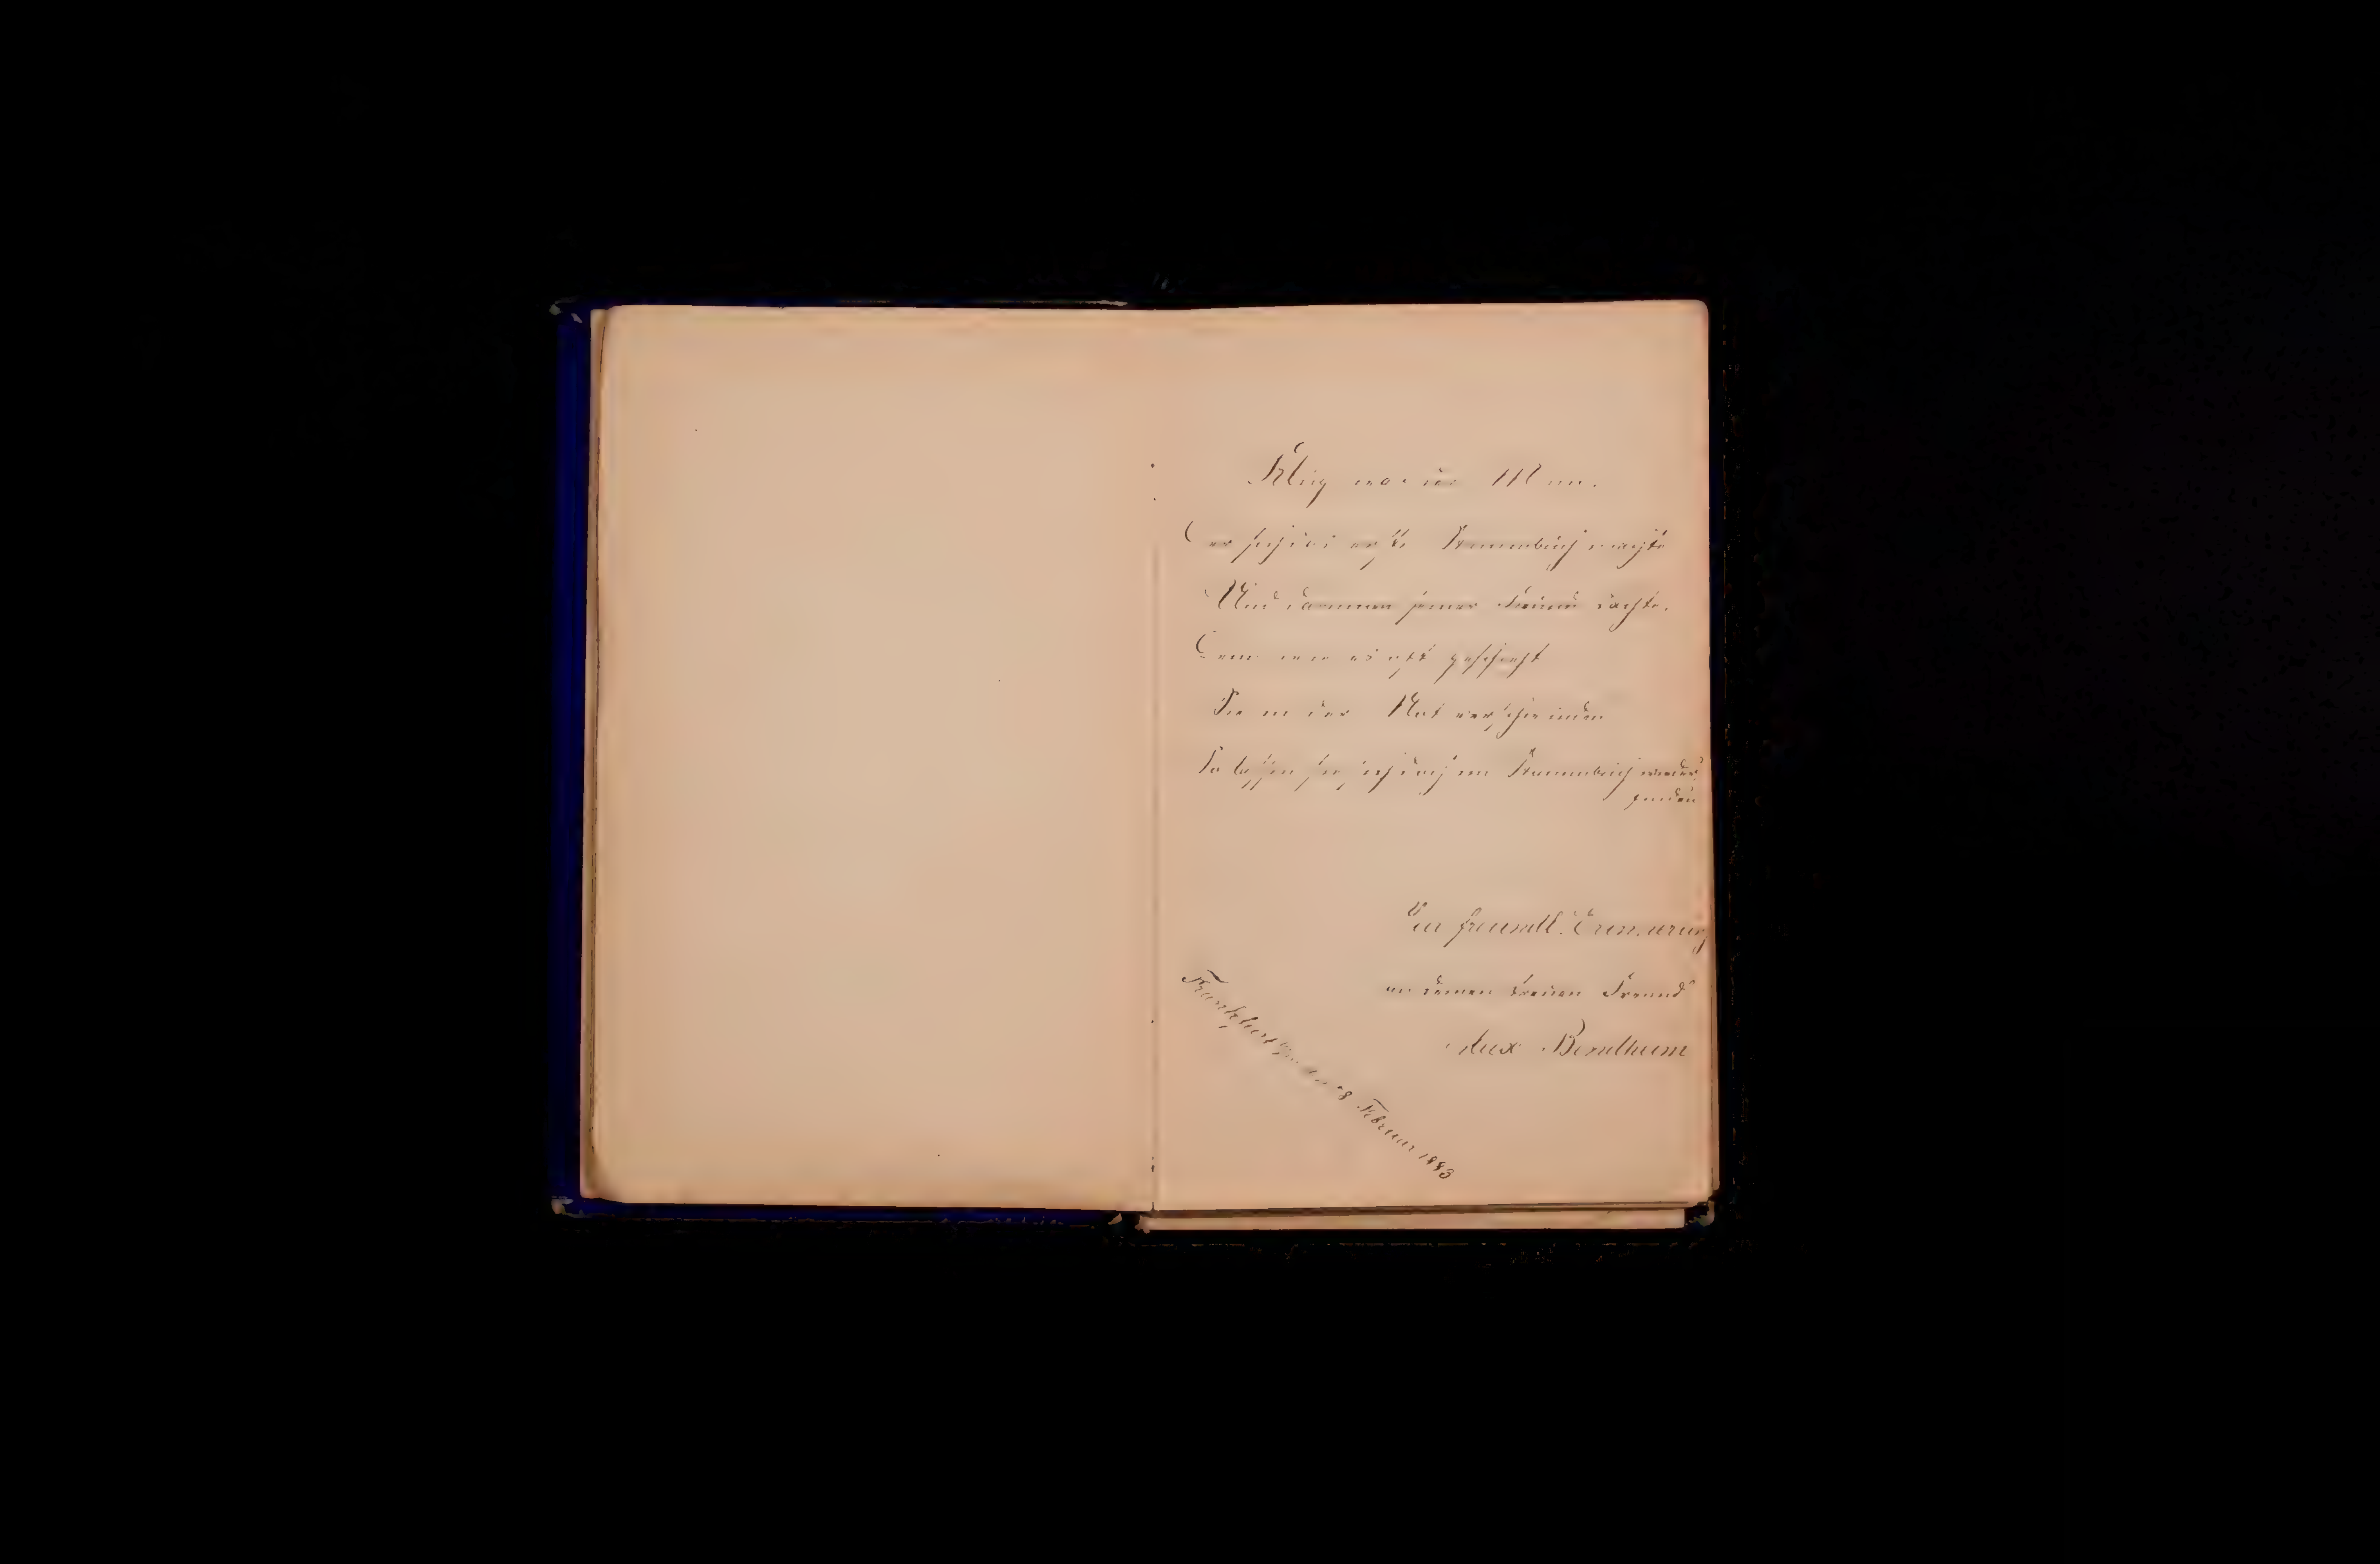 Klug war der Mann.
Der sich das erste Stammbuch machte
Und darinnen seiner Freunde dachte.
Denn wenn es oft geschieht
Sie in der Not verschwinden
So lassen sie sich doch im Stammbuch wieder
finden
Zur freundl. Erinnerung
an deinen treuen Freund
Max Bernheim
Frankfurt den 28 Februar 1883